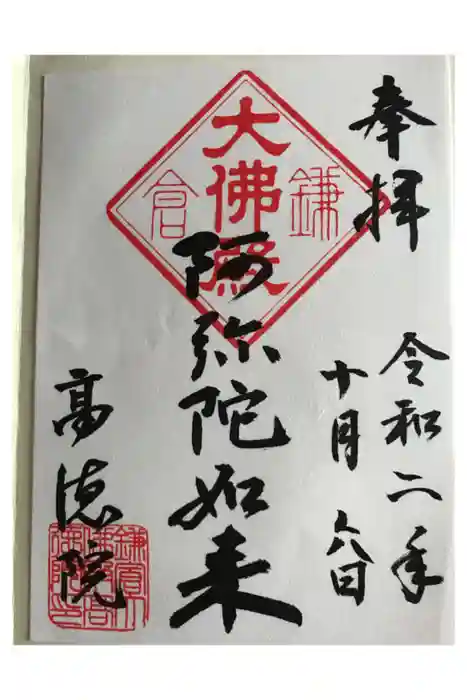 奉拝
令和二年
十月六日
大佛殿
鎌倉
阿弥陀如来
高徳院